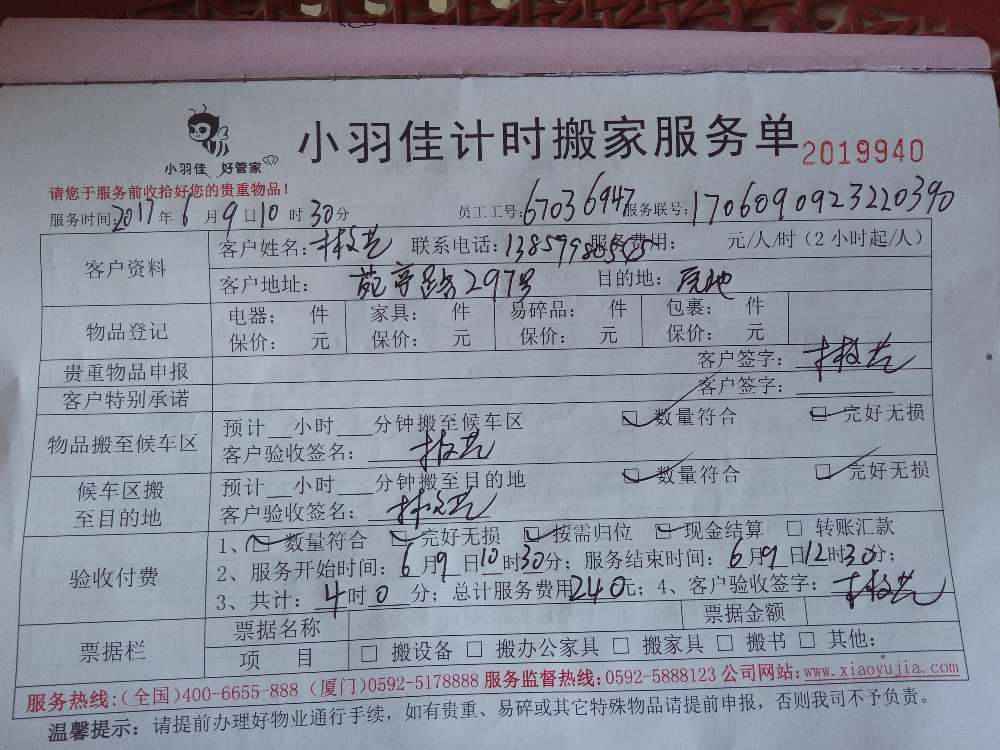 小羽佳计时搬家服务单 2019940
小羽佳 好管家
请您于服务前收拾好您的贵重物品！
服务时间:2017年6月9日10时30分 员工工号:67036947 服务联号:1706090923220390
客户资料
客户姓名: 联系电话: 服务费用: 元/人/时（2小时起/人）
客户地址: 297号 目的地:
物品登记
电器: 件 家具: 件 易碎品: 件 包裹: 件
保价: 元 保价: 元 保价: 元 保价: 元
贵重物品申报 客户签字:
客户特别承诺 客户签字:
物品搬至候车区
预计__小时___分钟搬至候车区 数量符合 完好无损
客户验收签名:
候车区搬至目的地
预计__小时___分钟搬至目的地 数量符合 完好无损
客户验收签名:
验收付费
1、数量符合 完好无损 按需归位 现金结算 □ 转账汇款
2、服务开始时间:6月9日10时30分；服务结束时间:6月9日12时30分；
3、共计:4时0分；总计服务费用240元；4、客户验收签字:
票据栏
票据名称 票据金额
项 目 □ 搬设备 □ 搬办公家具 □ 搬家具 □ 搬书 □ 其他:
服务热线:(全国)400-6655-888 (厦门)0592-5178888 服务监督热线:0592-5888123 公司网站:www.xiaoyujia.com
温馨提示：请提前办理好物业通行手续，如有贵重、易碎或其它特殊物品请提前申报，否则我司不予负责。